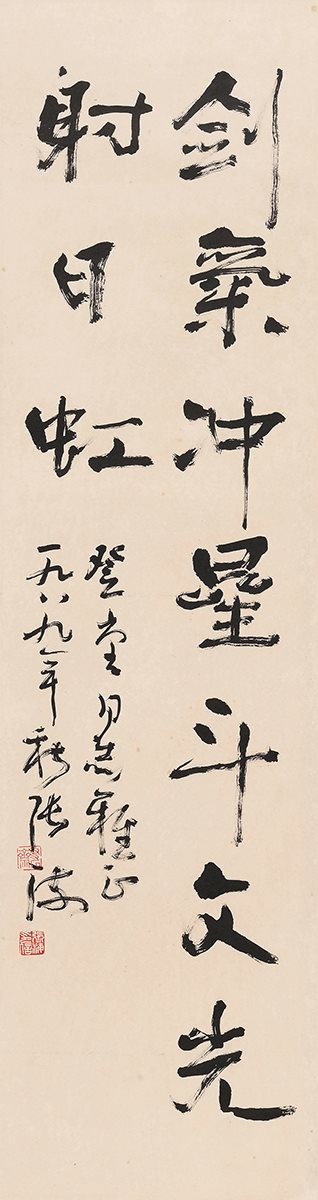 剑氣冲星斗文光
射日虹
登堂同志雅正
一九八九年秋张海